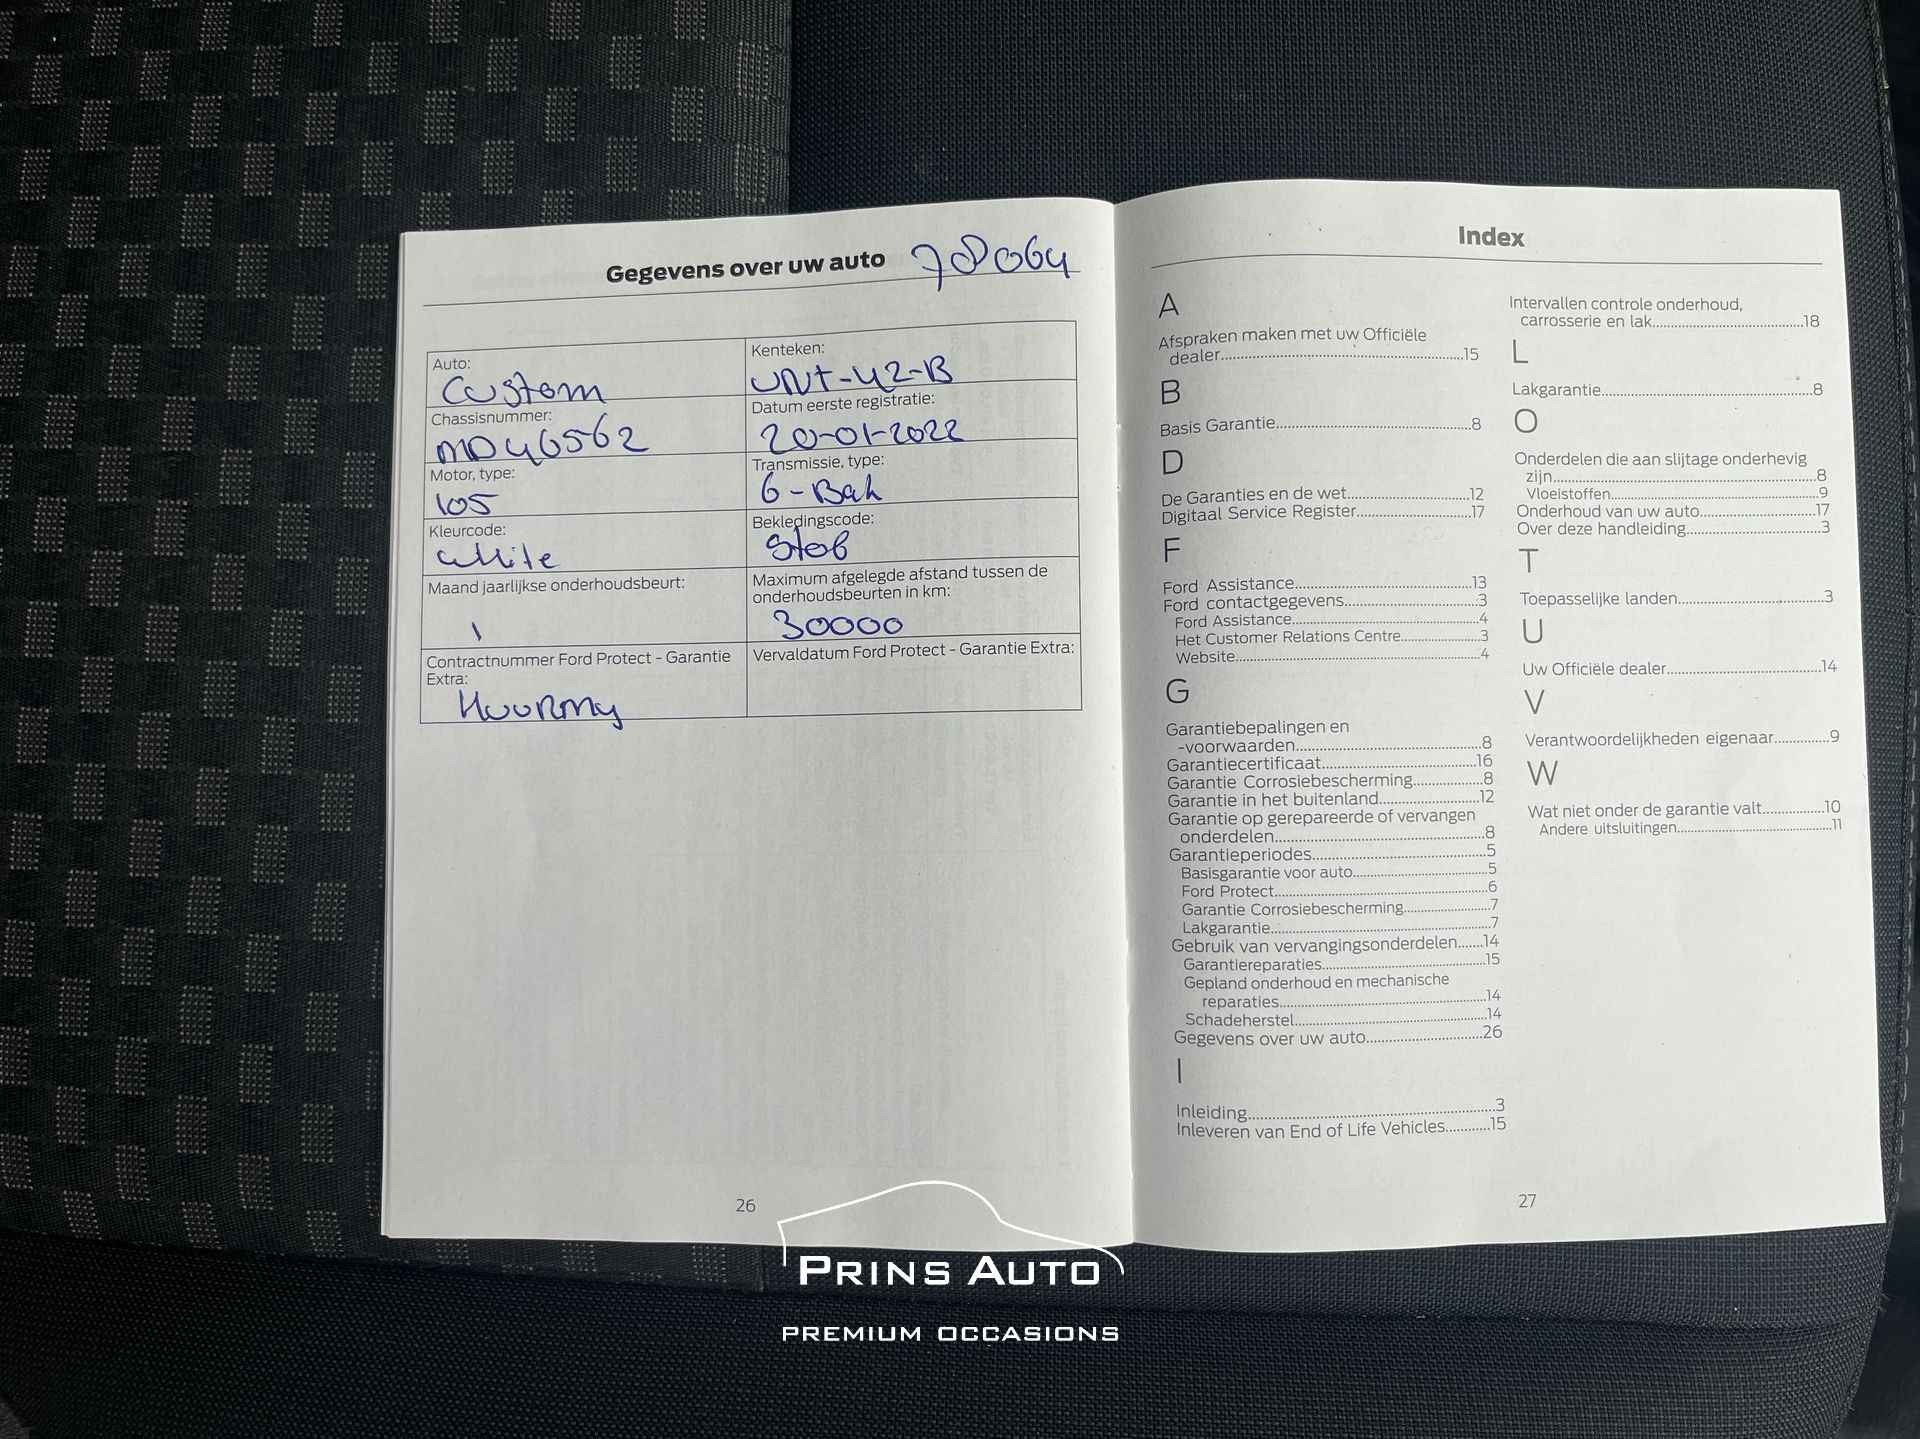 Gegevens over uw auto 78064
Auto:
Custom
Kenteken:
VNT-42-B
Chassisnummer:
MD46562
Datum eerste registratie:
20-01-2022
Motor, type:
105
Transmissie, type:
6-Bak
Kleurcode:
White
Bekledingscode:
Stof
Maand jaarlijkse onderhoudsbeurt:
1
Maximum afgelegde afstand tussen de
onderhoudsbeurten in km:
30000
Contractnummer Ford Protect - Garantie
Extra:
Vervaldatum Ford Protect - Garantie Extra:
26
Index
A
Afspraken maken met uw Officiële
dealer.....15
B
Basis Garantie.....8
D
De Garanties en de wet.....12
Digitaal Service Register.....17
F
Ford Assistance.....13
Ford contactgegevens.....3
Ford Assistance.....4
Het Customer Relations Centre.....3
Website.....4
G
Garantiebepalingen en
-voorwaarden.....8
Garantiecertificaat.....16
Garantie Corrosiebescherming.....8
Garantie in het buitenland.....12
Garantie op gerepareerde of vervangen
onderdelen.....8
Garantieperiodes.....5
Basisgarantie voor auto.....5
Ford Protect.....6
Garantie Corrosiebescherming.....7
Lakgarantie.....7
Gebruik van vervangingsonderdelen.....14
Garantiereparaties.....15
Gepland onderhoud en mechanische
reparaties.....14
Schadeherstel.....14
Gegevens over uw auto.....26
I
Inleiding.....3
Inleveren van End of Life Vehicles.....15
Intervallen controle onderhoud,
carrosserie en lak.....18
L
Lakgarantie.....8
O
Onderdelen die aan slijtage onderhevig
zijn.....8
Vloeistoffen.....9
Onderhoud van uw auto.....17
Over deze handleiding.....3
T
Toepasselijke landen.....3
U
Uw Officiële dealer.....14
V
Verantwoordelijkheden eigenaar.....9
W
Wat niet onder de garantie valt.....10
Andere uitsluitingen.....11
27
PRINS AUTO
PREMIUM OCCASIONS